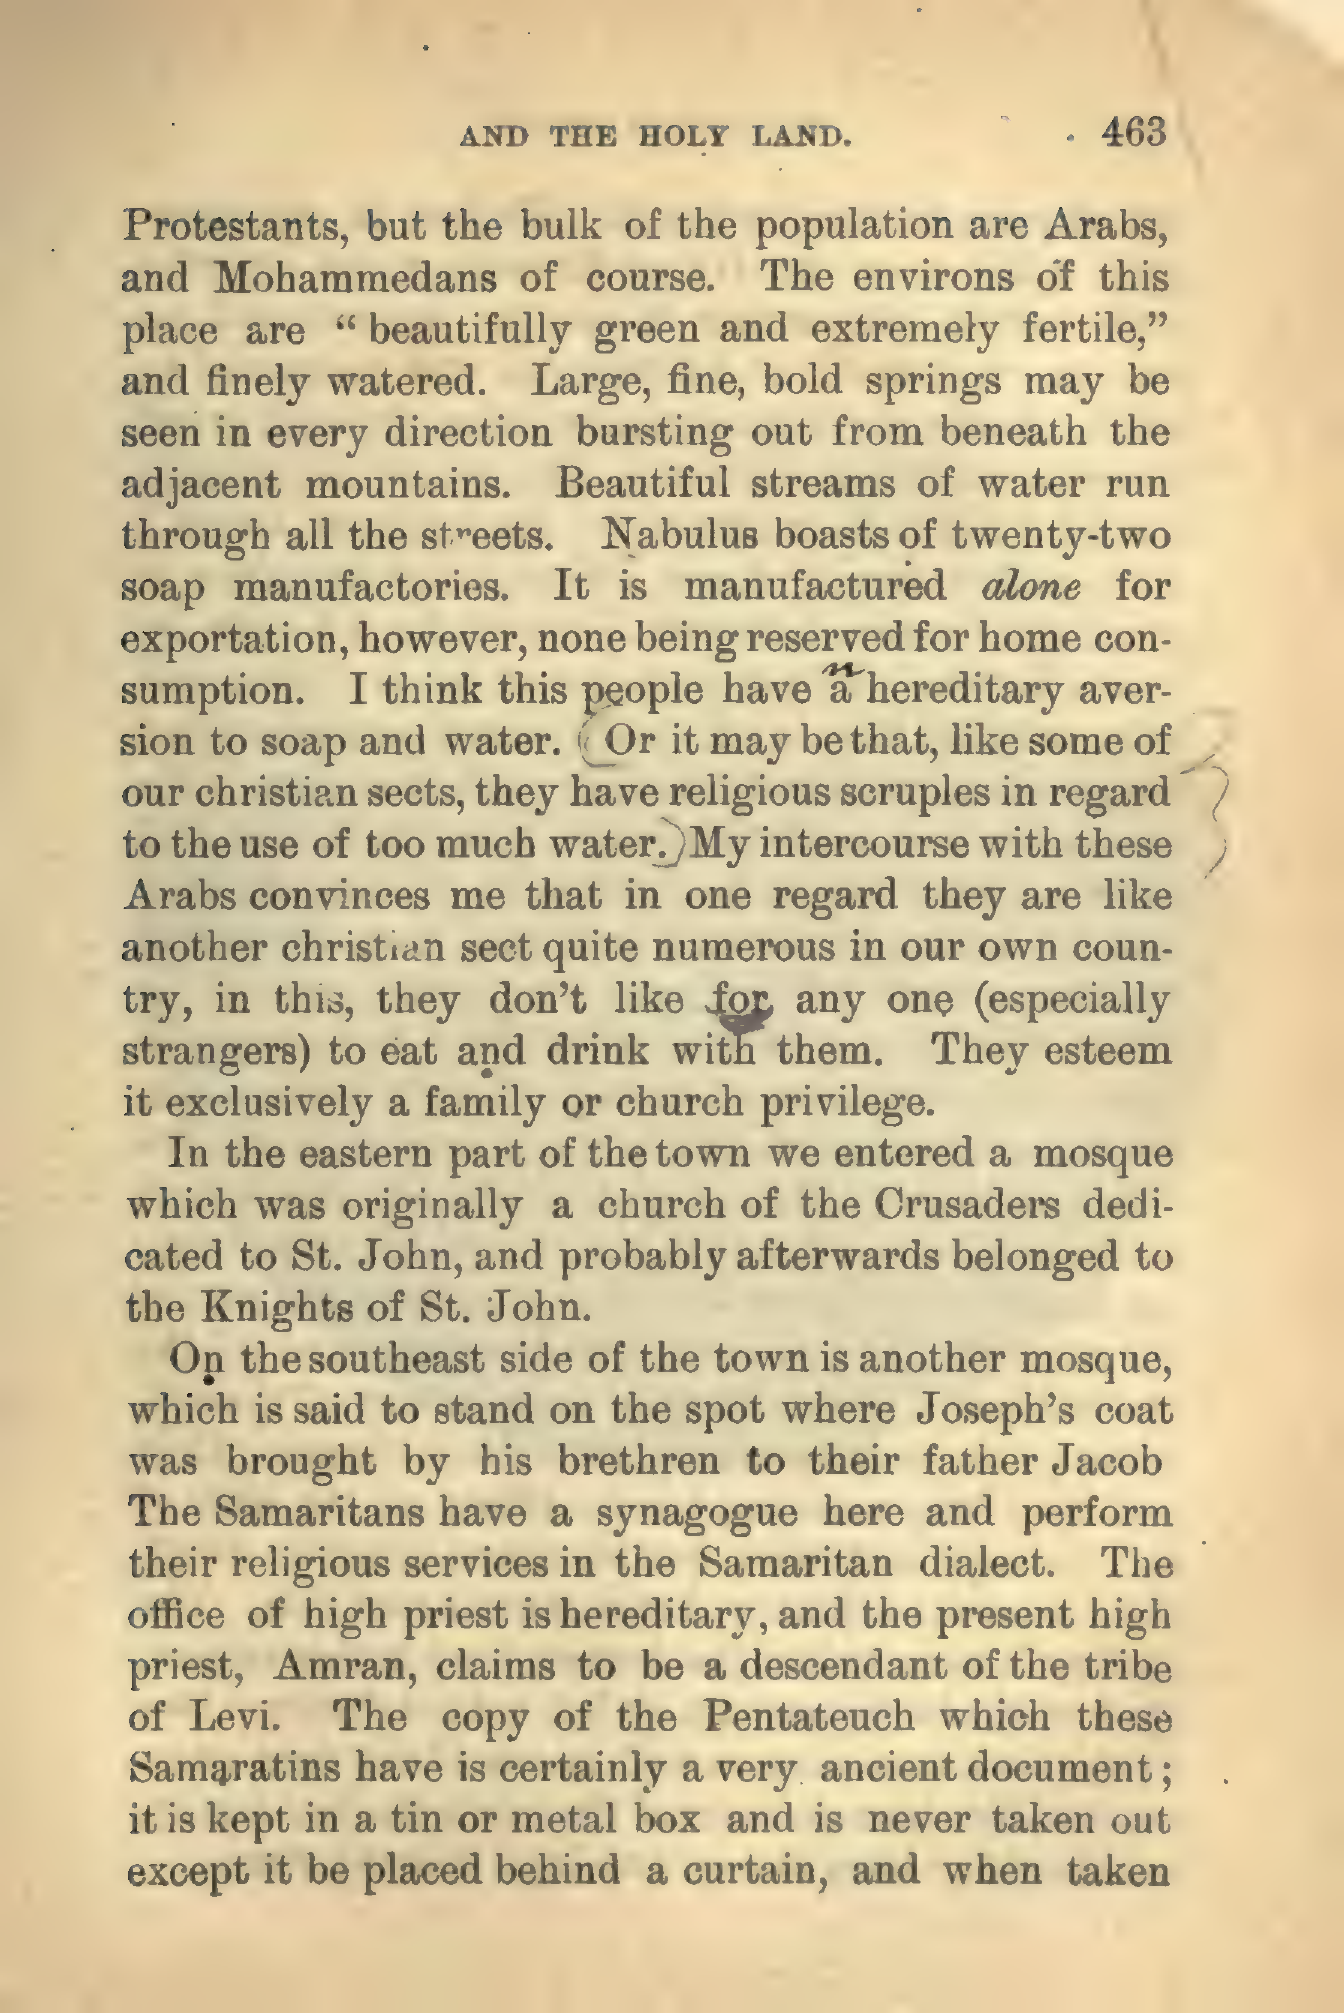 AND THE HOLY LAND. 463
Protestants, but the bulk of the population are Arabs,
and Mohammedans of course. The environs of this
place are “ beautifully green and extremely fertile,”
and finely watered. Large, fine, bold springs may be
seen in every direction bursting out from beneath the
adjacent mountains. Beautiful streams of water run
through all the streets. Nabulus boasts of twenty-two
soap manufactories. It is manufactured alone for
exportation, however, none being reserved for home con-
n
sumption. I think this people have a hereditary aver-
sion to soap and water. (Or it may be that, like some of
our christian sects, they have religious scruples in regard
to the use of too much water.) My intercourse with these
Arabs convinces me that in one regard they are like
another christian sect quite numerous in our own coun-
try, in this, they don’t like for any one (especially
strangers) to eat and drink with them. They esteem
it exclusively a family or church privilege.
In the eastern part of the town we entered a mosque
which was originally a church of the Crusaders dedi-
cated to St. John, and probably afterwards belonged to
the Knights of St. John.
On the southeast side of the town is another mosque,
which is said to stand on the spot where Joseph’s coat
was brought by his brethren to their father Jacob
The Samaritans have a synagogue here and perform
their religious services in the Samaritan dialect. The
office of high priest is hereditary, and the present high
priest, Amran, claims to be a descendant of the tribe
of Levi. The copy of the Pentateuch which these
Samaratins have is certainly a very ancient document ;
it is kept in a tin or metal box and is never taken out
except it be placed behind a curtain, and when taken